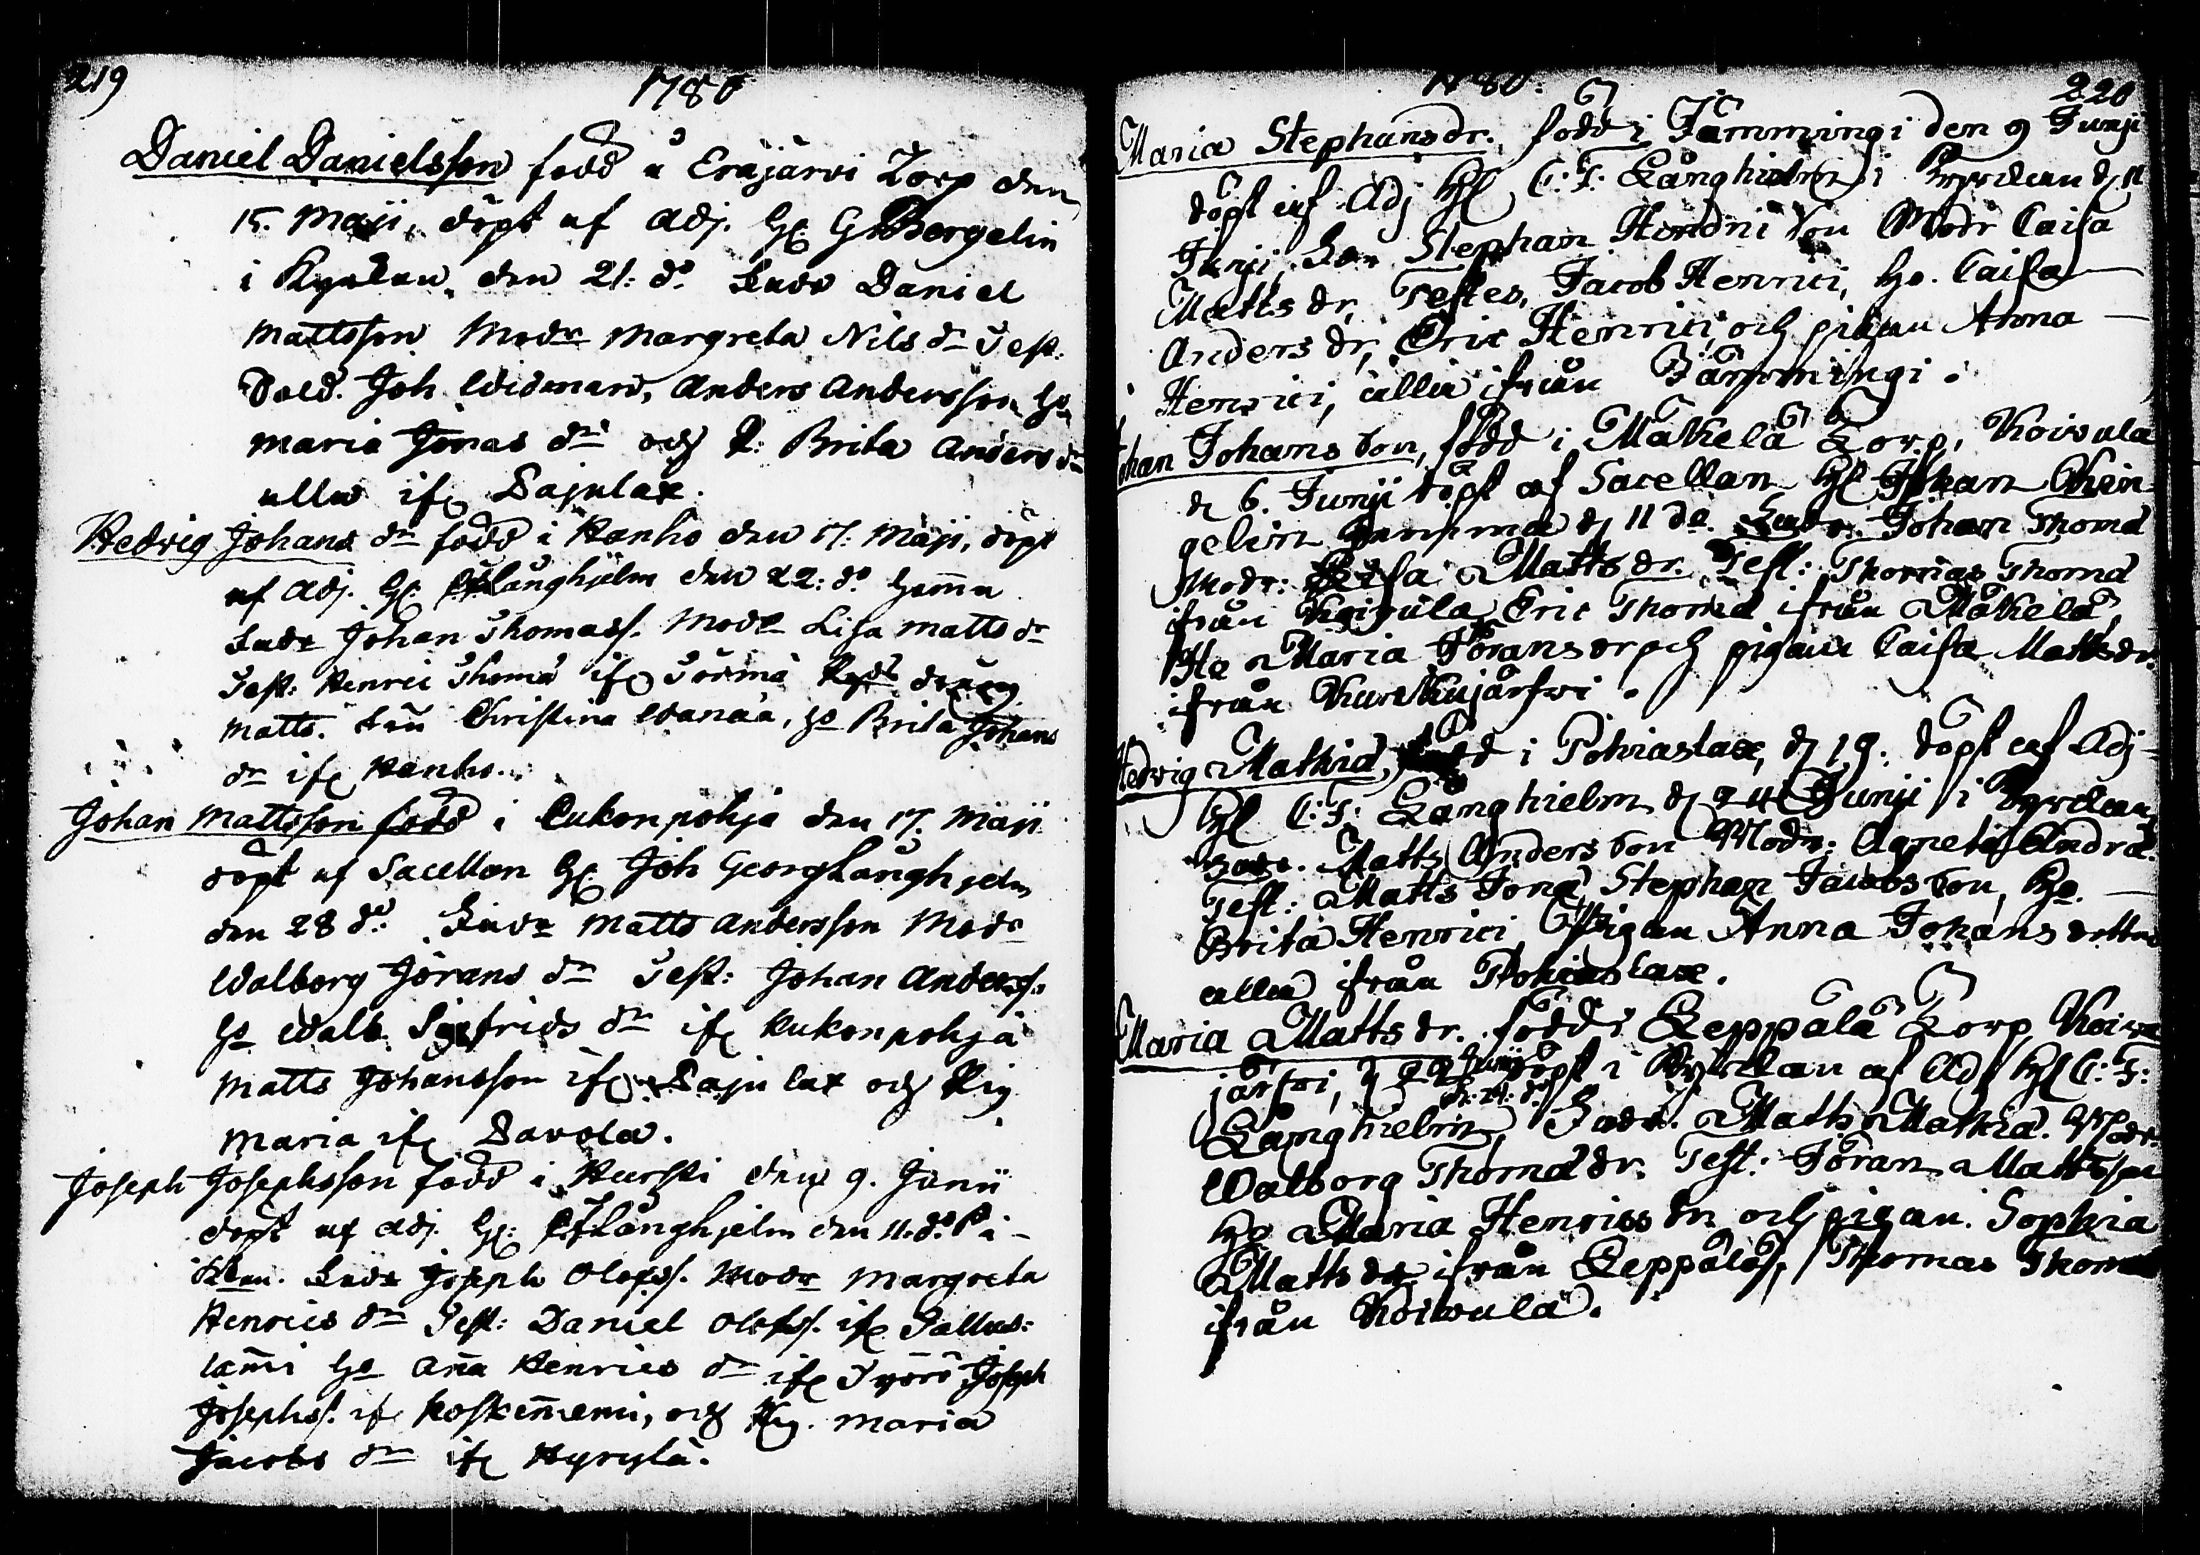 219
1780
Daniel Danielsson född i Eräjärvi Torp den
15. Maji, döpt af Adj. H: G Bergelin
i Kyrkan, den 21: do Fadr Daniel
Mattsson Modr Margreta Nils dr Test:
Sold. Joh Widman, Anders Andersson, Ho
Maria Jönas dr och P: Brita Anders dr
alla if: Pajulax.
Hedvig Johans dr född i Hanho den 17. Maji, döpt
af Adj. H: CFLånghjelm den 22: do hemma
Fadr Johan Thomass. Modr Lisa Matts dr
Test: Henric Thomæ if: Törmä dräng
Matts. Christina Wanaä, Ho Brita Johans
dr if: Hanho.
Johan Mattsson född i Cukonpohja den 17. Maji
döpt af Sacellan H: Joh Georg Långhjelm
den 28 do. Fadr Matts Andersson Modr
Walborg Jörans dr Test: Johan Anderss.
Ho Walb. Sigfrids dr if: Kukonpohja
Matts Johansson if: Pajulax och Pig
Maria if: Savola.
Joseph Josephsson född i Hurski den 9. Junii
döpt af Adj. H: CFLånghjelm den 11. do i
Fadr Joseph Olofss. Modr Margreta
Henrics dr Test: Daniel Olofss. if: Sallus-
lam̄i Ho An̄a Henrics dr if: Joseph
Josephss. if: Koskenniemi, och Pig. Maria
Jacobs dr if: Hyrylä.
1780.
220
Maria Stephansdr. född i Tämmingi den 9 Junji
döpt af Adj H: C: F: Långhielm i Kyrckan d 11
Junji, Fadr Stephan Hendric Son Modr Caisa
Matts dr, Testes, Jacob Henrici, Ho. Caisa
Anders dr, Eric Henrici, och pigan Anna
Henrici, alla ifrån Tämmingi.
Johan Johans Son, född i Mäkelä Torp, Koivula
d 6. Junji döpt af Sacellan H: Johan Chin-
gelin hemma d 11 do. Fadr. Johan Thomæ
Modr: Matts dr. Test: Thomas Thomæ
ifrån Koivula, Eric Thomæ ifrån Mäkelä,
Ho Maria Göransdr och pigan Caisa Mattsdr.
ifrån Kurkujärfvi.
Hedvig Mathiæ, född i Pohiaslax, d 19. döpt af Adj-
H: C: F: Långhielm d 24 Junji i Kyrckan,
Fadr. Matts Anders Son Modr: Agneta Andræ.
Test: Matts Jonæ, Stephan Jacobs Son, Ho.
Brita Henrici, Pigan Anna Johans dotter
alla ifrån Pohiaslax.
Maria Matts dr. född i Leppälä Torp, Koiva
järfvi, d 22 Junji döpt i Kyrckan af Adj H: C: F:
d: 24: do
Långhielm, Fadr. Matts Mathiæ. Modr.
Walborg Thomædr. Test: Jöran Mattsson
Ho Maria Henrics dr och pigan. Sophia
Matts dr ifrån Leppälä, Thomas Thomæ
ifrån Koivula.